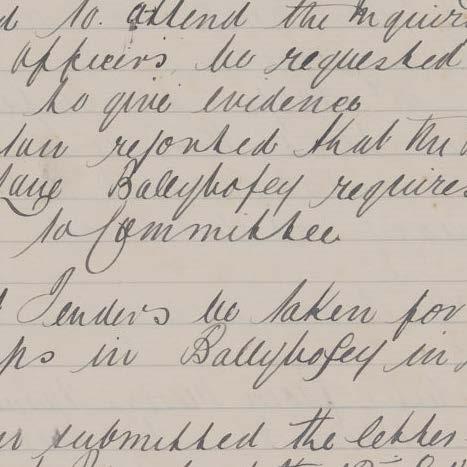 d to attend the inquir
officers be requested
to give evidence
reported that the
Lane Ballybofey requires
to Committee
Tenders be taken for
ps in Ballybofey in
submitted the letter